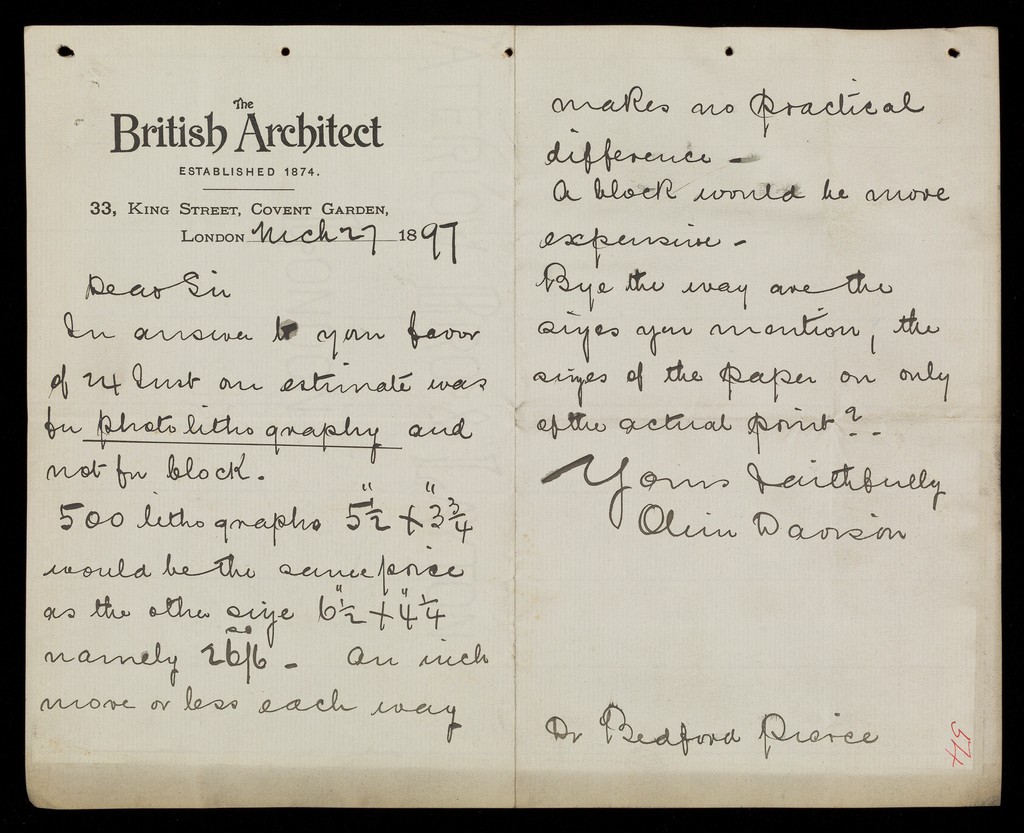 The
British Architect
ESTABLISHED 1874.
33, KING STREET, COVENT GARDEN,
LONDON Mch 27 1897
Dear Sir
In answer to your favor
of 24 Inst our estimate was
for photo lithography and
not for block.
500 lithographs 5½" x 3¾"
would be the same price
as the other size 6½" x 4¼"
namely 26/6 - An inch
more or less each way
makes no practical
difference -
A block would be more
expensive -
Bye the way are the
sizes you mention, the
sizes of the paper or only
of the actual print?
Yours faithfully
Davison
Dr Bedford Pierce
54